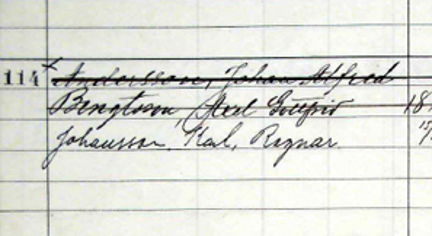 114 x Andersson, Johan Alfred
Bengtsson, Axel Gottfrid 18
Johansson, Karl, Ragnar